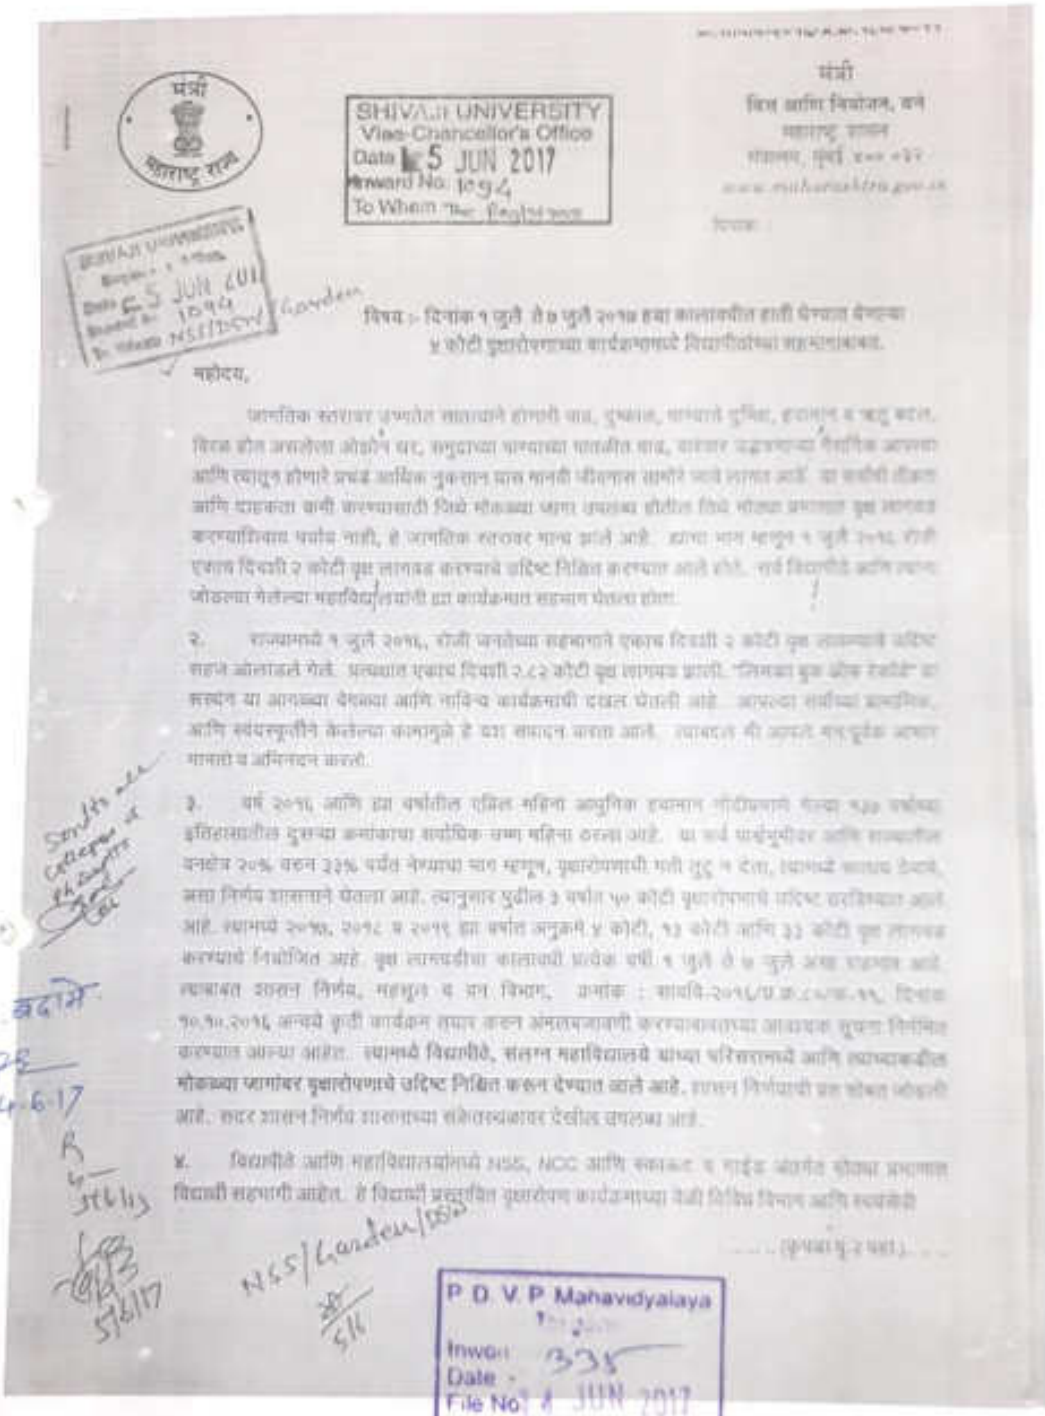 मंत्री
महाराष्ट्र राज्य
SHIVAJI UNIVERSITY
Vice-Chancellor's Office
Date 5 JUN 2017
Inward No. 1094
To Whom The Registrar
मंत्री
वित्त आणि नियोजन, वने
महाराष्ट्र शासन
मंत्रालय, मुंबई ४०० ०३२
www.maharashtra.gov.in
दिनांक :
SHIVAJI UNIVERSITY
Date 5 JUN 201
Inward No. 1094
To Whom NSS/DSW/Garden
विषय :- दिनांक १ जुलै ते ७ जुलै २०१७ ह्या कालावधीत हाती घेण्यात येणाऱ्या
४ कोटी वृक्षारोपणाच्या कार्यक्रमामध्ये विद्यापीठांच्या सहभागाबाबत.
महोदय,
जागतिक स्तरावर उष्णतेत सातत्याने होणारी वाढ, दुष्काळ, पाण्याचे दुर्भिक्ष, हवामान व ऋतू बदल,
विरळ होत असलेला ओझोन थर, समुद्राच्या पाण्याच्या पातळीत वाढ, वारंवार उद्भवणाऱ्या नैसर्गिक आपत्त्या
आणि त्यातून होणारे प्रचंड आर्थिक नुकसान यास मानवी जीवनास सामोरे जावे लागत आहे. या सर्वांची तीव्रता
आणि दाहकता कमी करण्यासाठी जिथे मोकळ्या जागा उपलब्ध होतील तिथे मोठ्या प्रमाणात वृक्ष लागवड
करण्याशिवाय पर्याय नाही, हे जागतिक स्तरावर मान्य झाले आहे. ह्याचा भाग म्हणून १ जुलै २०१६ रोजी
एकाच दिवशी २ कोटी वृक्ष लागवड करण्याचे उद्दिष्ट निश्चित करण्यात आले होते. सर्व विद्यापीठे आणि त्यांना
जोडल्या गेलेल्या महाविद्यालयांनी ह्या कार्यक्रमात सहभाग घेतला होता.
२. राज्यामध्ये १ जुलै २०१६, रोजी जनतेच्या सहभागाने एकाच दिवशी २ कोटी वृक्ष लावण्याचे उद्दिष्ट
सहज ओलांडले गेले. प्रत्यक्षात एकाच दिवशी २.८२ कोटी वृक्ष लागवड झाली. "लिमका बुक ऑफ रेकॉर्ड" या
संस्थेने या आगळ्या वेगळ्या आणि नाविन्य कार्यक्रमाची दखल घेतली आहे. आपल्या सर्वांच्या प्रामाणिक,
आणि स्वयंस्फूर्तीने केलेल्या कामामुळे हे यश संपादन करता आले. त्याबद्दल मी आपले मनःपूर्वक आभार
मानतो व अभिनंदन करतो.
३. वर्ष २०१६ आणि ह्या वर्षातील एप्रिल महिना आधुनिक हवामान नोंदीप्रमाणे गेल्या १३७ वर्षांच्या
इतिहासातील दुसऱ्या क्रमांकाचा सर्वाधिक उष्ण महिना ठरला आहे. या सर्व पार्श्वभूमीवर आणि राज्यातील
वनक्षेत्र २०% वरुन ३३% पर्यंत नेण्याचा भाग म्हणून, वृक्षारोपणाची गती तुटू न देता, त्यामध्ये सातत्य ठेवावे,
असा निर्णय शासनाने घेतला आहे. त्यानुसार पुढील ३ वर्षात ५० कोटी वृक्षारोपणाचे उद्दिष्ट ठरविण्यात आले
आहे. त्यामध्ये २०१७, २०१८ व २०१९ ह्या वर्षात अनुक्रमे ४ कोटी, १३ कोटी आणि ३३ कोटी वृक्ष लागवड
करण्याचे नियोजित आहे. वृक्ष लागवडीचा कालावधी प्रत्येक वर्षी १ जुलै ते ७ जुलै असा राहणार आहे.
त्याबाबत शासन निर्णय, महसूल व वन विभाग, क्रमांक : सावंवि-२०१६/प्र.क्र.८०/फ-११, दिनांक
१०.१०.२०१६ अन्वये कृती कार्यक्रम तयार करुन अंमलबजावणी करण्याबाबतच्या आवश्यक सूचना निर्गमित
करण्यात आल्या आहेत. त्यामध्ये विद्यापीठे, संलग्न महाविद्यालये यांच्या परिसरामध्ये आणि त्यांच्याकडील
मोकळ्या जागांवर वृक्षारोपणाचे उद्दिष्ट निश्चित करून देण्यात आले आहे. शासन निर्णयाची प्रत सोबत जोडली
आहे. सदर शासन निर्णय शासनाच्या संकेतस्थळावर देखील उपलब्ध आहे.
४. विद्यापीठे आणि महाविद्यालयांमध्ये NSS, NCC आणि स्काऊट व गाईड अंतर्गत मोठ्या प्रमाणात
विद्यार्थी सहभागी आहेत. हे विद्यार्थी प्रस्तावित वृक्षारोपण कार्यक्रमाच्या वेळी विविध विभाग आणि स्वयंसेवी
.....(कृपया पृ-२ पहा)....
Send to all
4-6-17
5/6/17
5/6/17
NSS/Garden/DSW
5/6
P D V P Mahavidyalaya
Inward 335
Date -
File No 4 JUN 2017